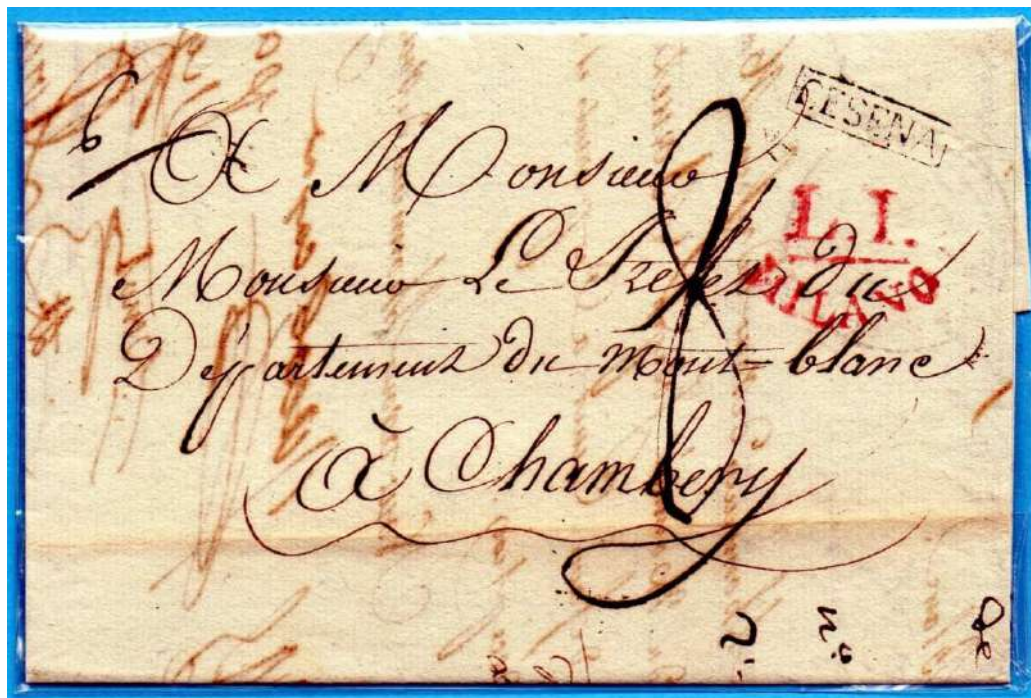 6
CESENA
A Monsieur
L.I.
MILANO
Monsieur Le Prefet du
Département du mont=blanc
à Chambery
8